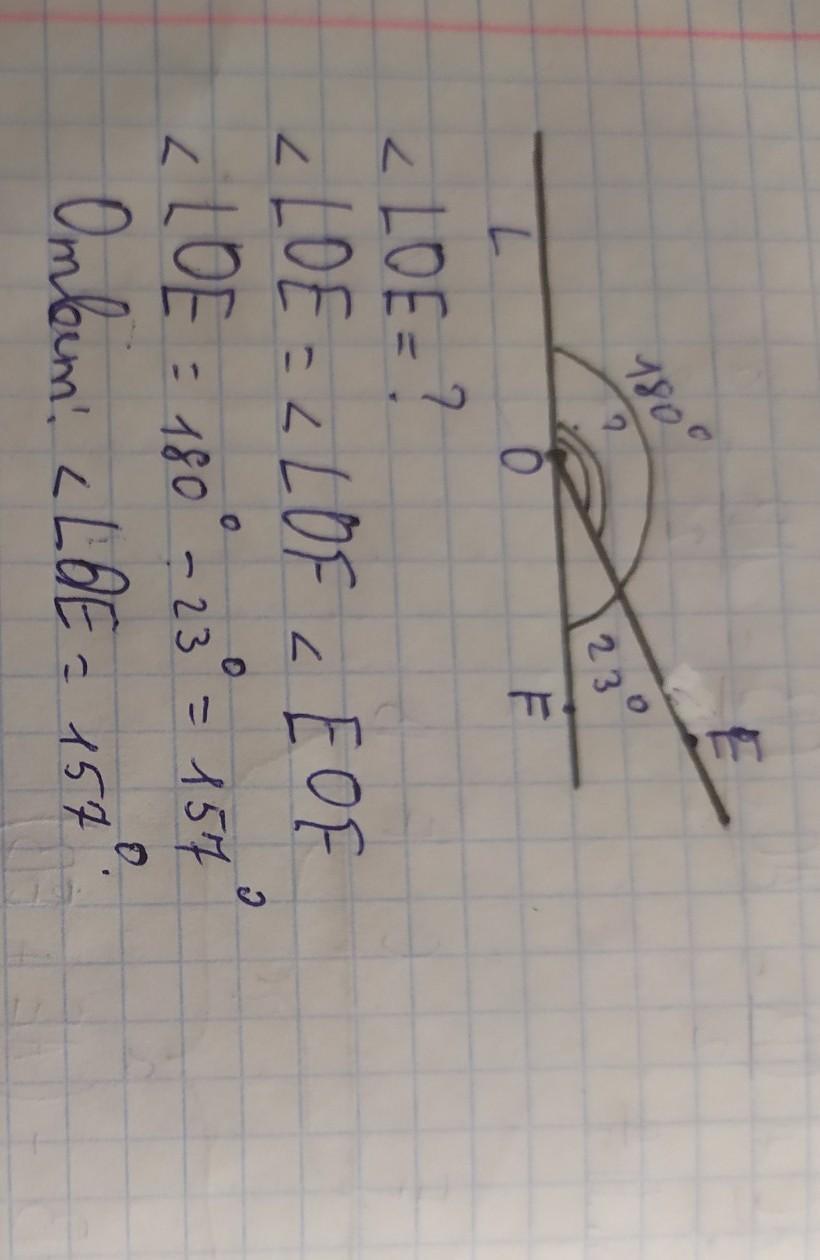 180°
?
L
O
23°
F
E
< LOE = ?
< LOE = < LOF < EOF
< LOE = 180° - 23° = 157°
Ответ: < LOE = 157°.